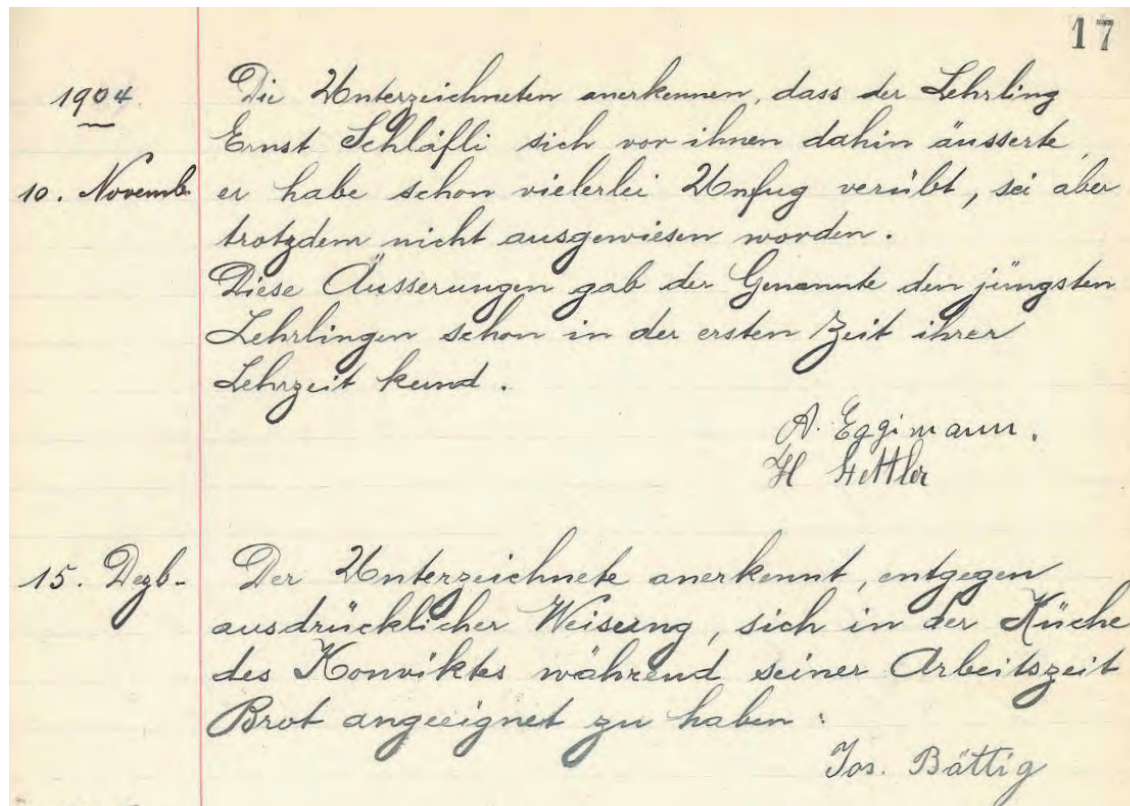 17
1904.
Die Unterzeichneten anerkennen, dass der Lehrling
Ernst Schläfli sich vor ihnen dahin äusserte,
10. Novemb. er habe schon vielerlei Unfug verübt, sei aber
trotzdem nicht ausgewiesen worden.
Diese Äusserungen gab der Genannte den jüngsten
Lehrlingen schon in der ersten Zeit ihrer
Lehrzeit kund.
A. Eggimann.
H Stettler
15. Dezb- Der Unterzeichnete anerkennt, entgegen
ausdrücklicher Weisung, sich in der Küche
des Konviktes während seiner Arbeitszeit
Brot angeeignet zu haben:
Jos. Bättig